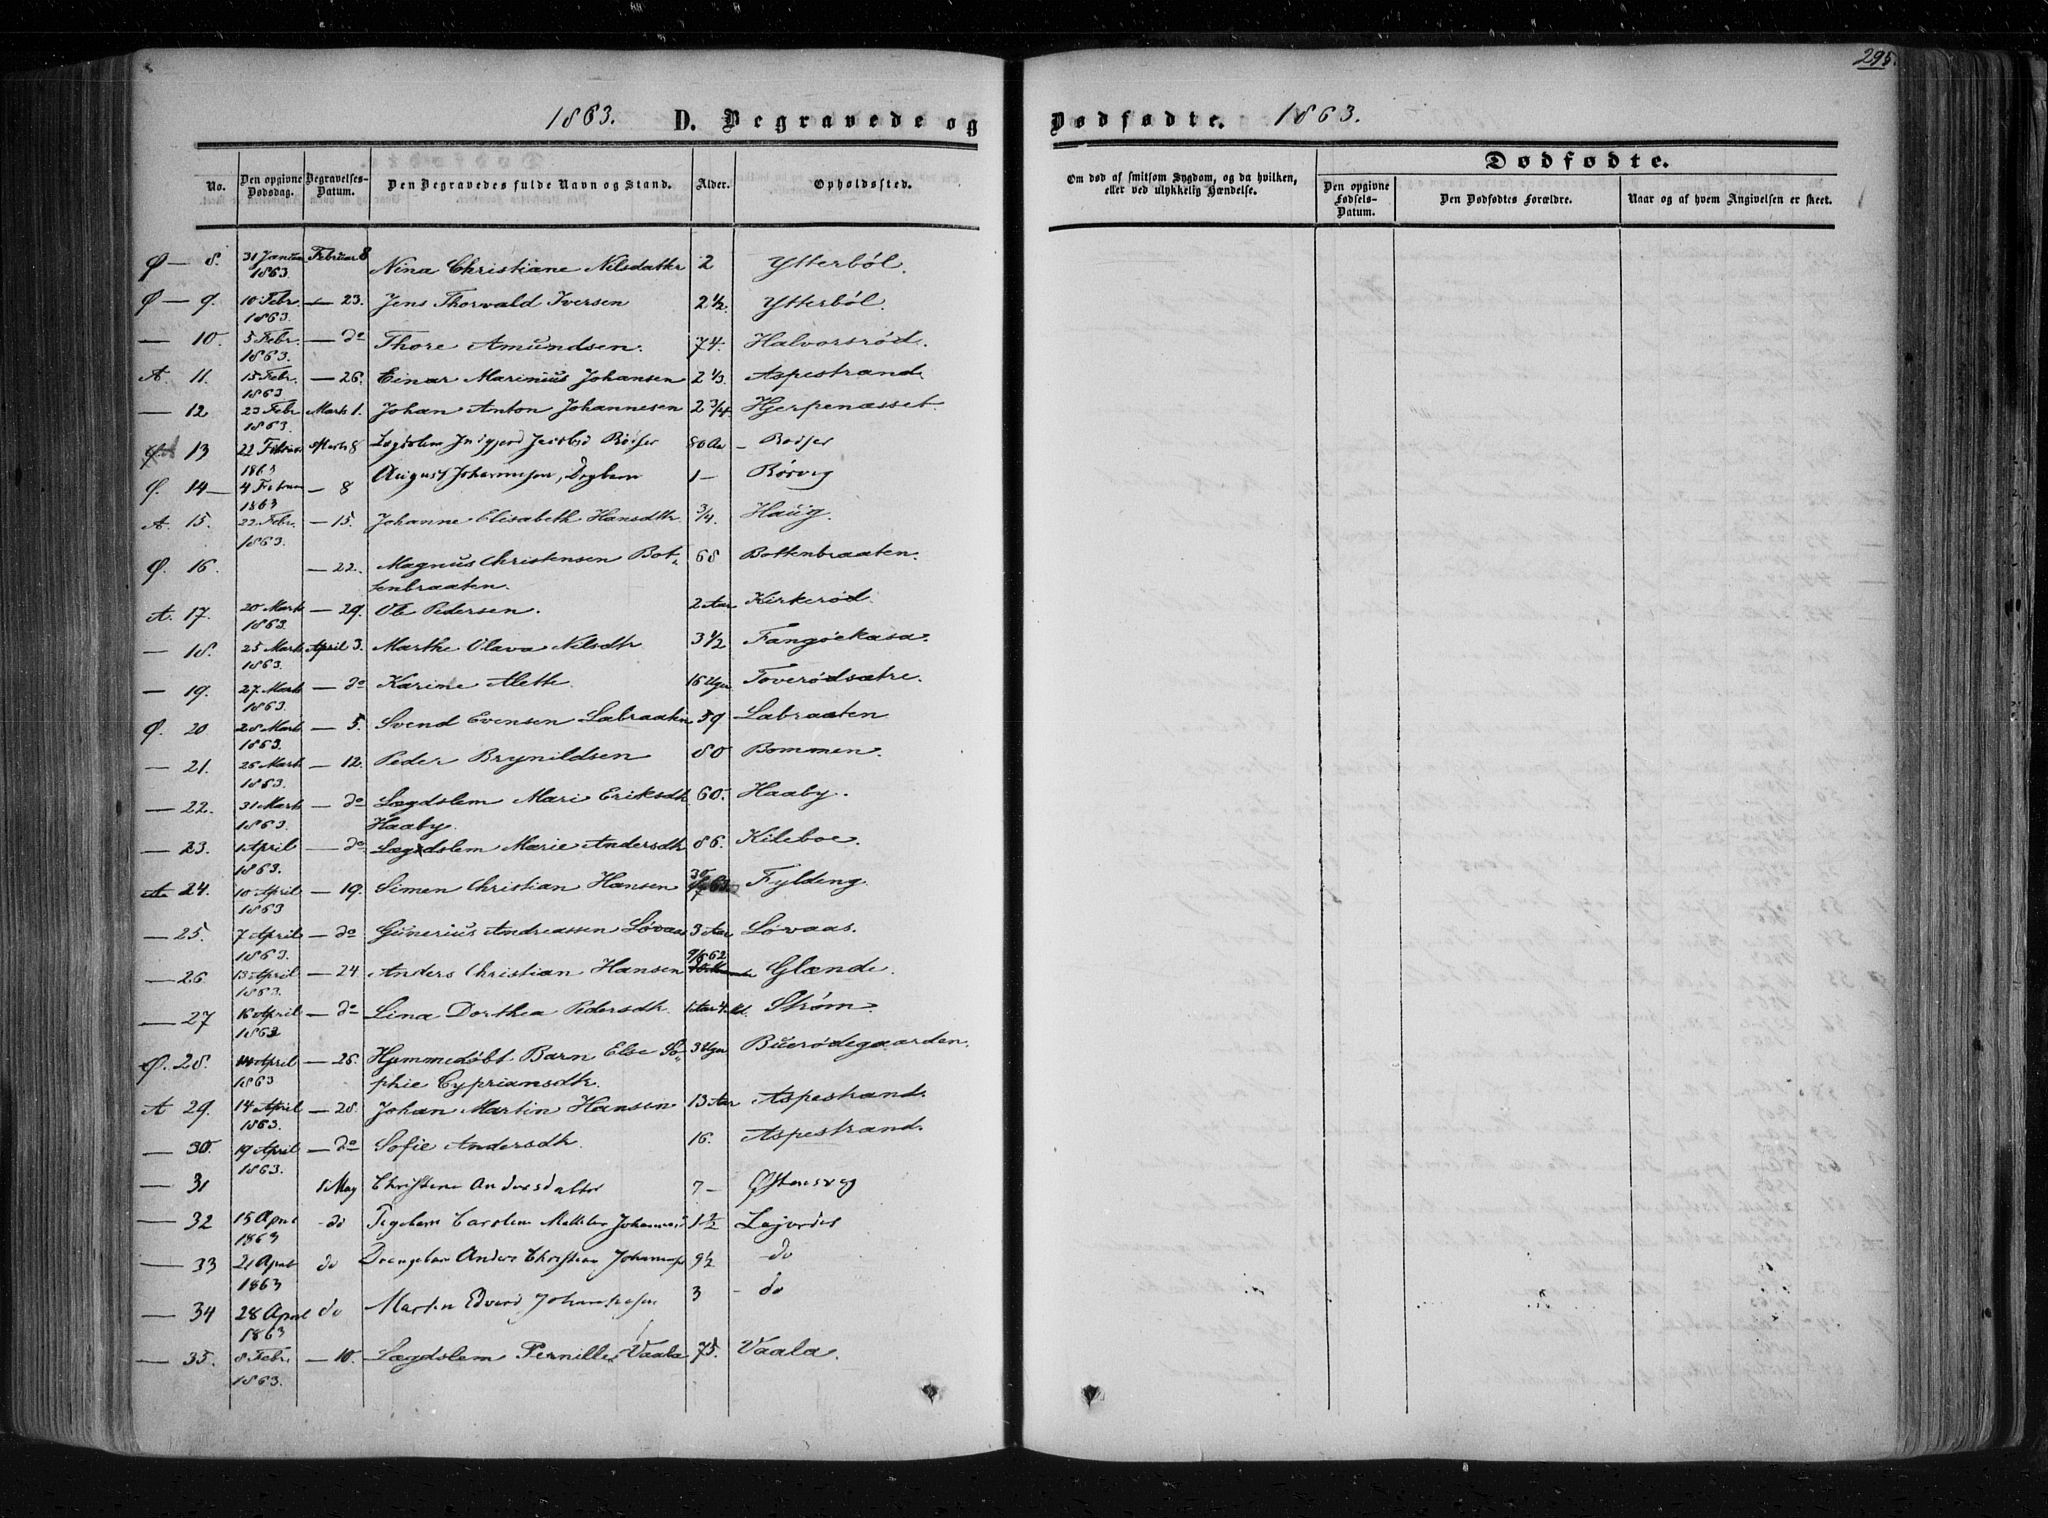 295.
1863. D. Begravede og Dødfødte. 1863.
No. Den opgivne Dødsdag. Begravelses-Datum. Den Begravedes fulde Navn og Stand. Alder. Opholdssted. Om død af smitsom Sygdom, og da hvilken, eller ved ulykkelig Hændelse. Dødfødte. Den opgivne Fødsels-Datum. Den Dødfødtes Forældre. Naar og af hvem Angivelsen er skeet.
Ø — 8. 31 Januar 1863. Februar 8 Nina Christiane Nilsdatter 2 Ytterbøl.
Ø — 9. 10 Febr. 1863. — 23. Jens Thorvald Iversen 2 1/2. Ytterbøl.
— 10. 5 Febr. 1863. — do Thore Amundsen. 74. Halvorsrød.
A. 11. 15 Febr. 1863 — 26. Einar Marinius Johansen 2 1/3. Aspestrand
— 12 23 Febr 1863. Marts 1. Johan Anton Johannesen 2 3/4 Hjerpenasset.
13 22 Februar 1863 Marts 8 Lægdslem Ingjerd Jacobsd 80 Aar
Ø. 14 — 4 Februar 1863 — 8 August Johannesen, 1 — Rørvig
A 15. 22 Febr. 1863. — 15. Johanne Elisabeth Hansdtr 3/4. Haug.
Ø. 16. — 22. Magnus Christensen Bot- 68 Bottenbraaten.
tenbraaten.
A. 17. 20 Marts 1863. — 29. Ole Pedersen. 2 Aar Kirkerød.
— 18. 25 Marts 1863. April 3. Marthe Olava Nilsdtr 3 1/2 Fangøekasa.
— 19. 27 Marts 1863. — do Karine Alette. 16 Uger Toverødsætre.
Ø. 20 28 Marts 1863. — 5. Svend Evensen Labraaten 59 Labraaten
— 21. 26 Marts 1863. — 12. Peder Brynildsen 80 Bommen.
— 22. 31 Marts 1863. — do Lægdslem Mari Eriksdtr 60. Haaby.
Haaby.
— 23. 1 April 1863. — do Lægdslem Marie Andersdtr 86. Kileboe.
A 24. 10 April 1863 — 19. Simen Christian Hansen Fyldeng.
— 25. 7 April 1863. — do Gunerius Andreassen Løvaas 3 Aar Løvaas.
— 26 13 April 1863. — 24 Anders Christian Hansen 9/8 62 Glænde.
— 27 16 April 1863 — do Lina Dorthea Pedersdtr. 1 Aar 4 Md. Strøm.
Ø. 28. 14 April 1863 — 26. Hjemmedøbt Barn Else So- 3 Uger Buerødegaarden.
phie Cypriansdtr.
A 29. 14 April 1863. — 28. Johan Martin Hansen 13 Aar Aspestrand.
— 30. 19 April 1863. — do Sofie Andersdtr. 16. Aspestrand.
— 31 1 May Christine Andersdatter 7 —
— 32 15 April 1863 — do Pigebarn Caroline 1 1/2
— 33 21 April 1863 do Drengebarn Anders Christian 9 1/2 — do
— 34 28 April 1863 do Martin Edvard Johannesen 3 — do
— 35. 8 Febr. 1863. — 10. Lægdslem Pernille Vaala 75. Vaala.